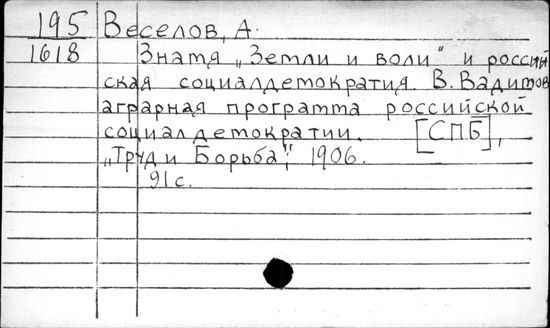 195 Веселов, А.
1618 Знамя „Земли и воли" и россий
ская социалдемократия. В. Вадимов
аграрная программа российской
социалдемократии. [СПБ],
„Труд и Борьба", 1906.
91 с.